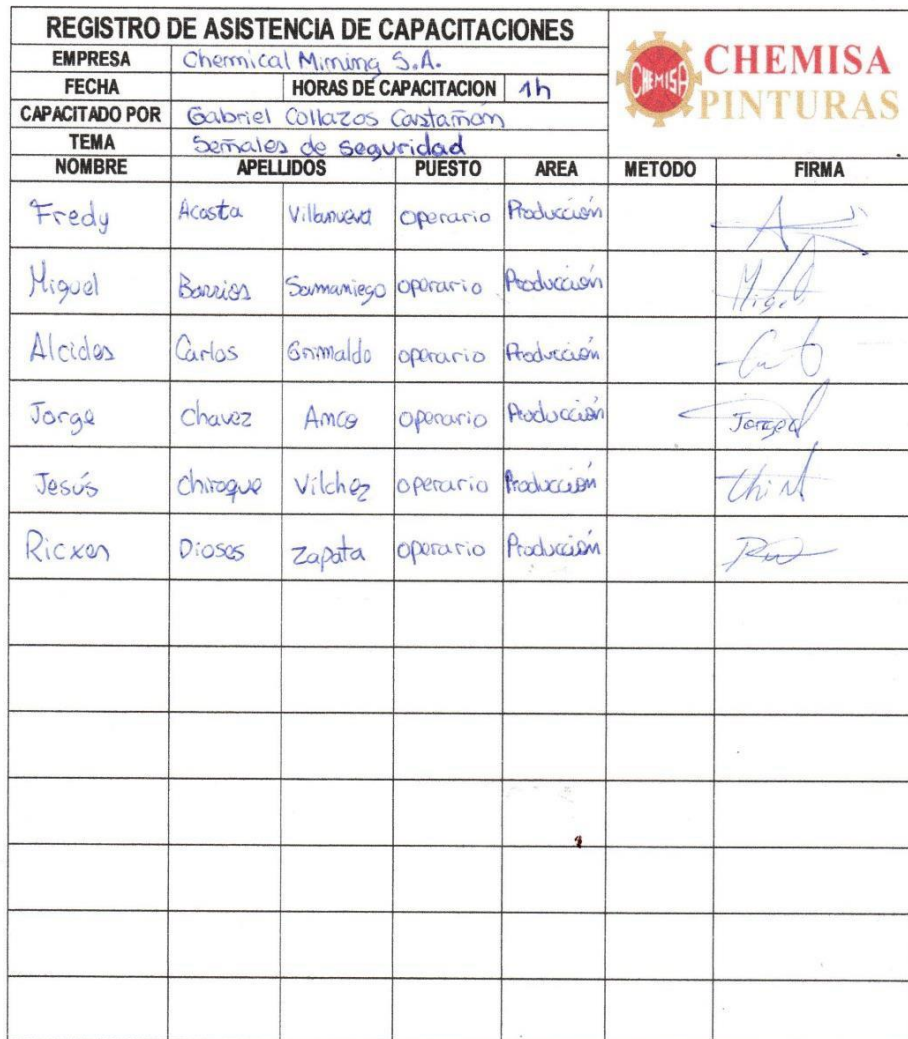 REGISTRO DE ASISTENCIA DE CAPACITACIONES
EMPRESA Chemical Mining S.A.
FECHA HORAS DE CAPACITACION 1h
CAPACITADO POR Gabriel Collazos Castañon
TEMA Señales de seguridad
CHEMISA
CHEMISA
PINTURAS
NOMBRE APELLIDOS PUESTO AREA METODO FIRMA
Fredy Acosta Villanueva operario Producción
Miguel Barrios Sammaniego operario Producción Miguel
Alcides Carlos Grimaldo operario Producción
Jorge Chavez Amco operario Producción
Jesús Chiroque Vilchez operario Producción
Ricxen Dioses Zapata operario Producción